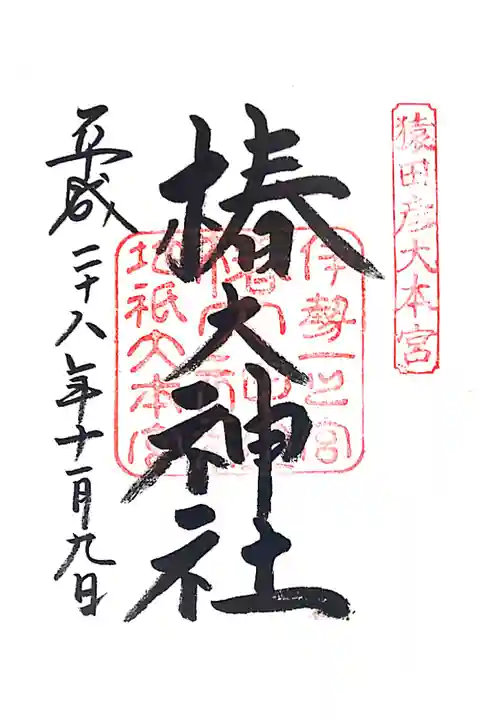 猿田彦大本宮
伊勢一之宮
椿大神社
地祇大本宮
平成二十八年十一月九日